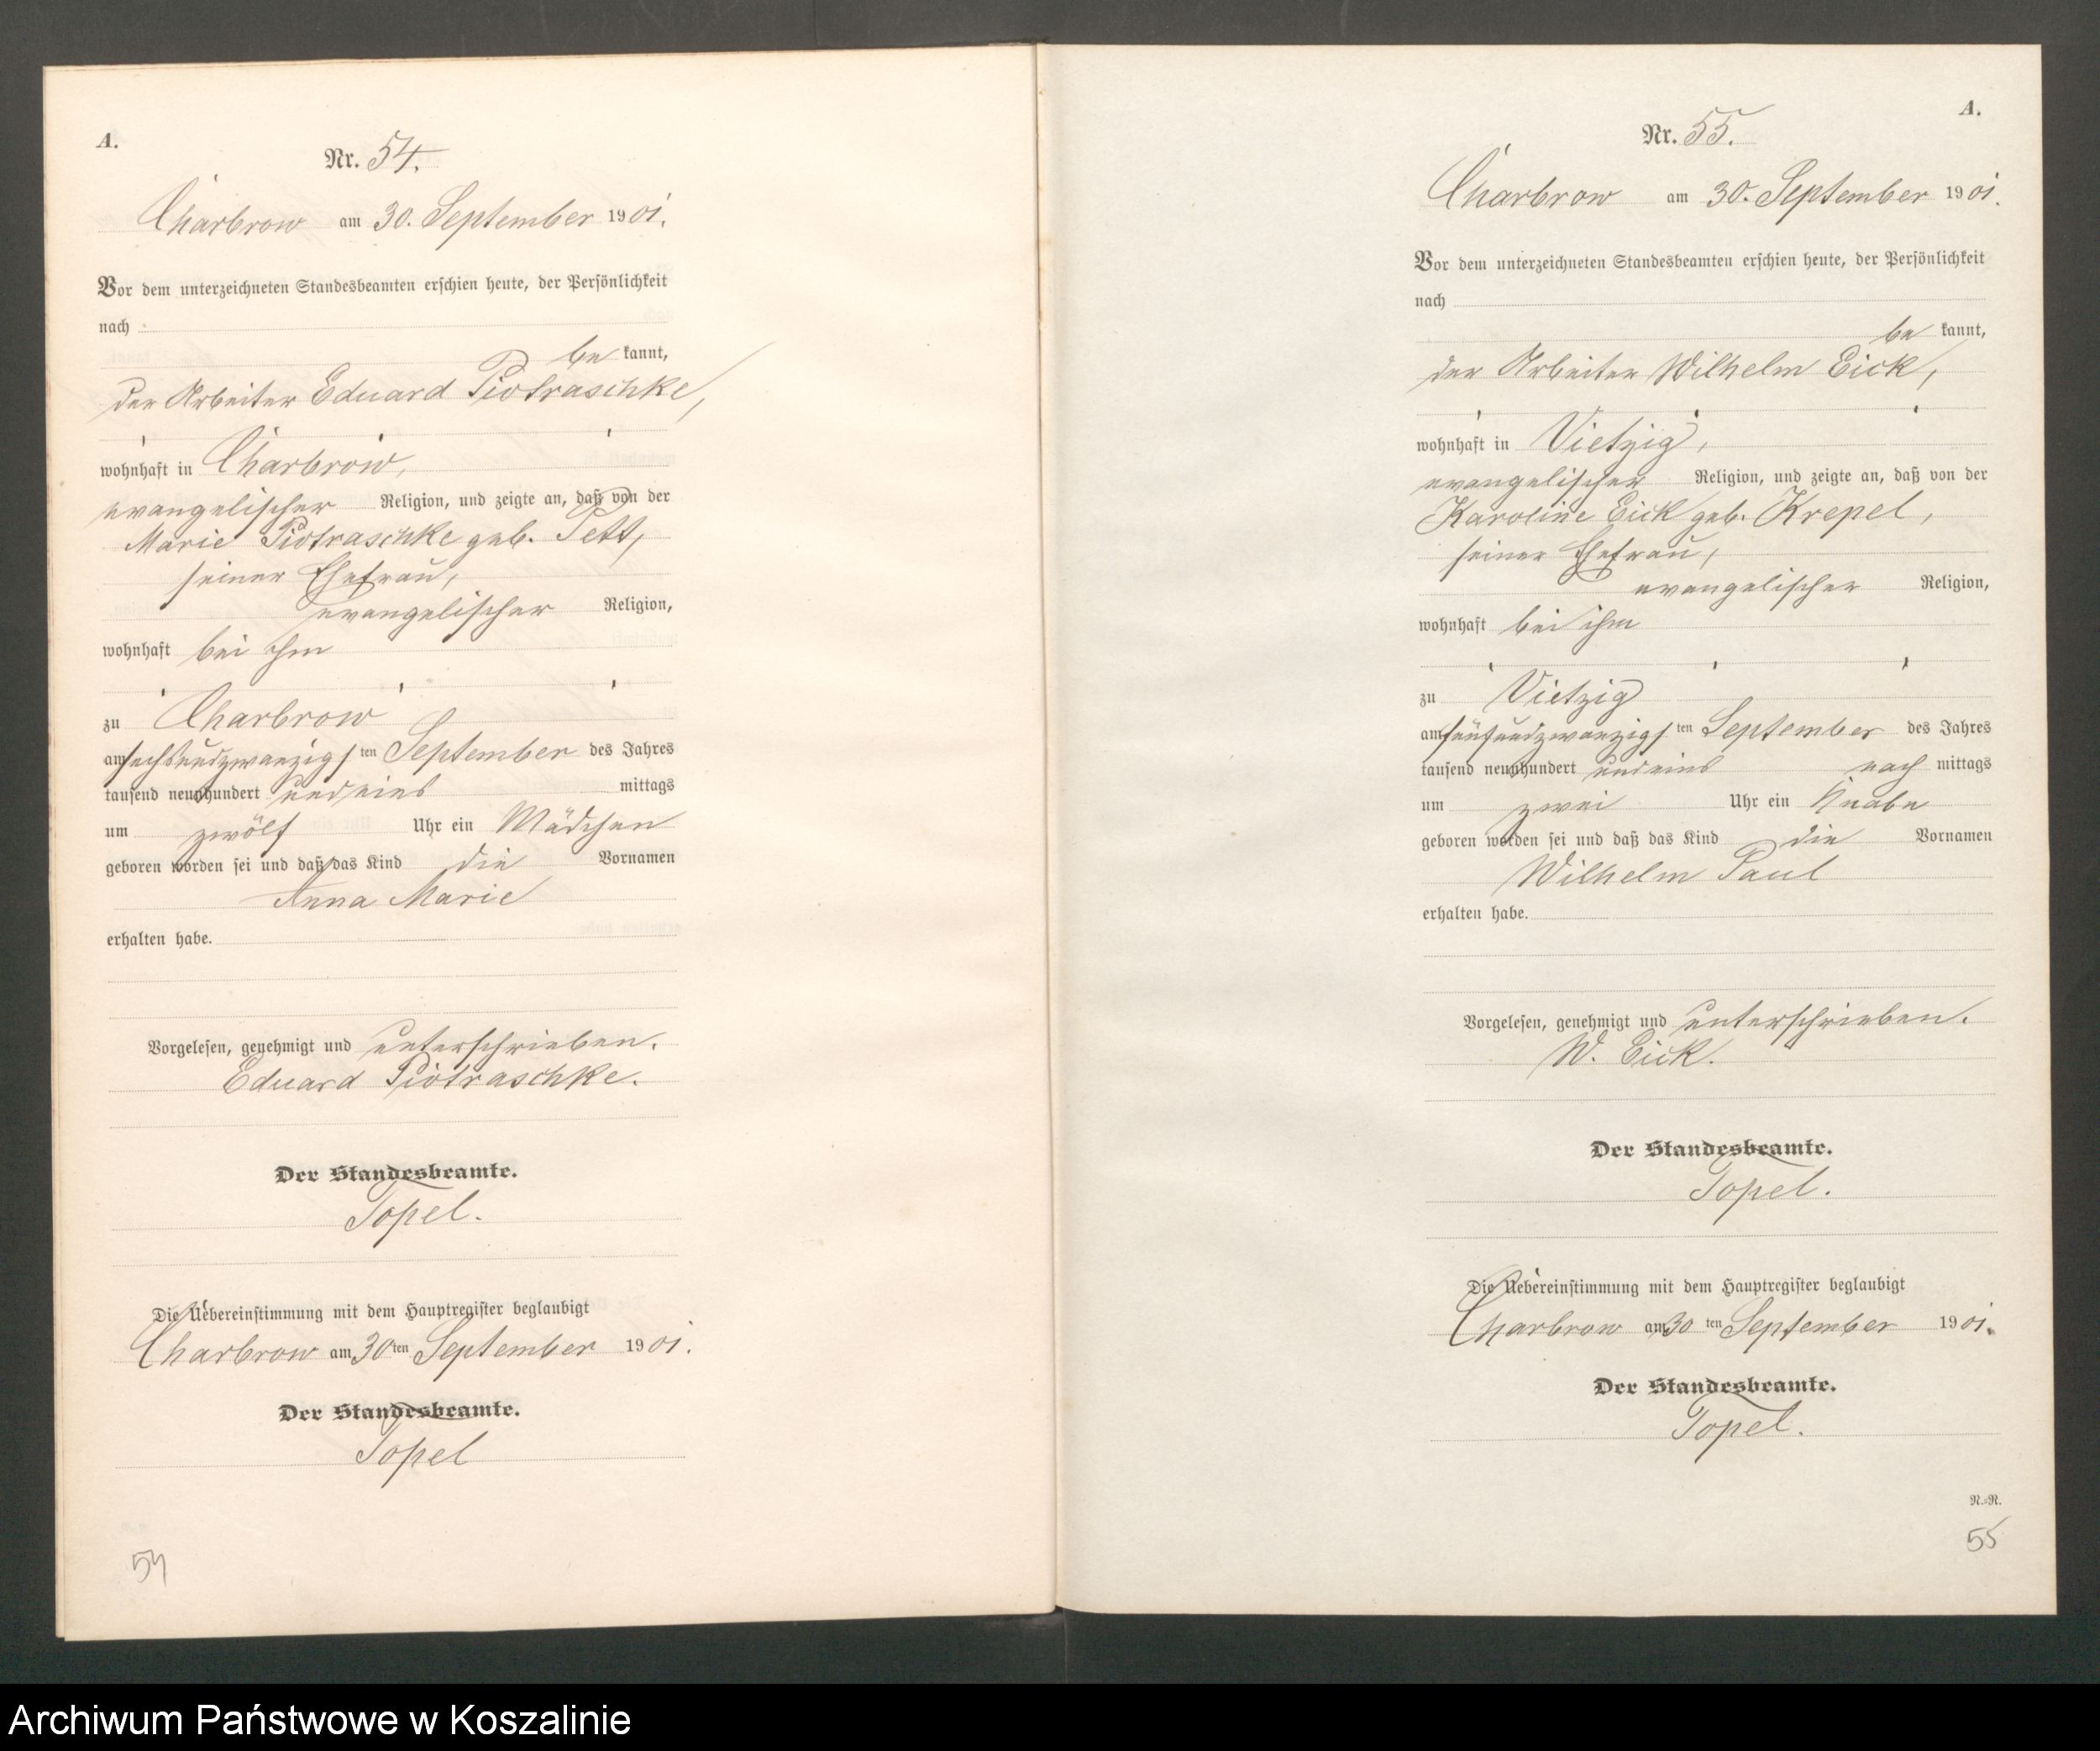 A.
Nr. 54.
Charbrow am 30. September 1901.
Vor dem unterzeichneten Standesbeamten erschien heute, der Persönlichkeit
nach
be kannt,
der Arbeiter Eduard Piotraschke,
wohnhaft in Charbrow,
evangelischer Religion, und zeigte an, daß von der
Marie Piotraschke geb. Pett,
seiner Ehefrau,
evangelischer Religion,
wohnhaft bei ihm
zu Charbrow
am sechsundzwanzigsten September des Jahres
tausend neunhundert und eins mittags
um zwölf Uhr ein Mädchen
geboren worden sei und daß das Kind die Vornamen
Anna Marie
erhalten habe.
Vorgelesen, genehmigt und unterschrieben.
Eduard Piotraschke.
Der Standesbeamte.
Topel.
Die Uebereinstimmung mit dem Hauptregister beglaubigt
Charbrow am 30ten September 1901.
Der Standesbeamte.
Topel
54
A.
Nr. 55.
Charbrow am 30. September 1901.
Vor dem unterzeichneten Standesbeamten erschien heute, der Persönlichkeit
nach
be kannt,
der Arbeiter Wilhelm Eick,
wohnhaft in Vietzig,
evangelischer Religion, und zeigte an, daß von der
Karoline Eick geb. Krepel,
seiner Ehefrau,
evangelischer Religion,
wohnhaft bei ihm
zu Vietzig
am fünfundzwanzigsten September des Jahres
tausend neunhundert und eins nach mittags
um zwei Uhr ein Knabe
geboren worden sei und daß das Kind die Vornamen
Wilhelm Paul
erhalten habe.
Vorgelesen, genehmigt und unterschrieben.
W. Eick.
Der Standesbeamte.
Topel.
Die Uebereinstimmung mit dem Hauptregister beglaubigt
Charbrow am 30 ten September 1901.
Der Standesbeamte.
Topel.
N.-R.
55
Archiwum Państwowe w Koszalinie